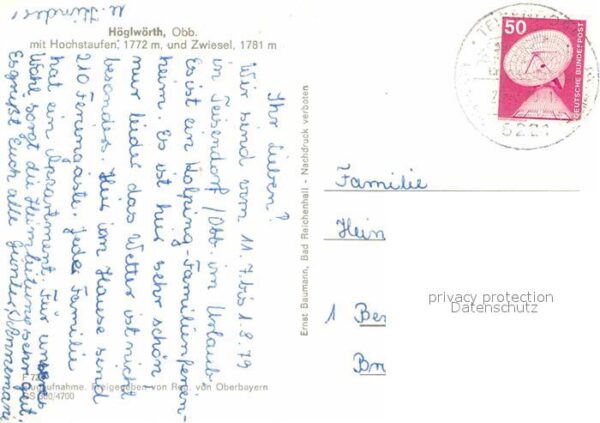 Höglwörth, Obb.
mit Hochstaufen, 1772 m, und Zwiesel, 1781 m
Ihr Lieben!
Wir sind vom 11.7. bis 1.8.79
in Teisendorf/Obb. im Urlaub
Es ist ein Kolping-Familienferien-
heim. Es ist hier sehr schön!
nur leider das Wetter ist nicht
besonders. Hier im Hause sind
210 Feriengäste. Jede Familie
hat ein Appartment. Für unser
Wohl sorgt die Heimleitung sehr gut!
Es grüßt Euch alle Günter, Annemarie
u. Kinder!
Luftaufnahme. Freigegeben von Reg. von Oberbayern
GS 300/4700
Ernst Baumann, Bad Reichenhall - Nachdruck verboten
50
DEUTSCHE BUNDESPOST
5221
Familie
Hein
1 Ber
privacy protection
Datenschutz